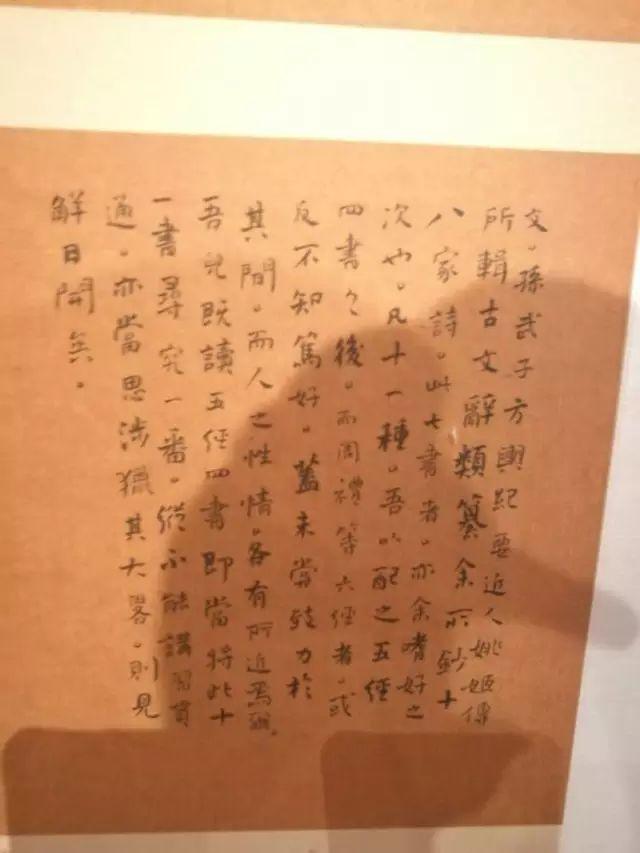 文。孫武子方輿紀要近人姚姬傳
所輯古文辭類纂余所鈔十
八家詩。此七書者。亦余嗜好之
次也。凡十一種。吾以配之五經
四書之後。而周禮等六經者。或
反不知篤好。蓋未嘗致力於
其間。而人之性情。各有所近焉爾。
吾兒既讀五經四書即當將此十
一書尋究一番。縱不能講習貫
通。亦當思涉獵其大畧。則見
解日開矣。